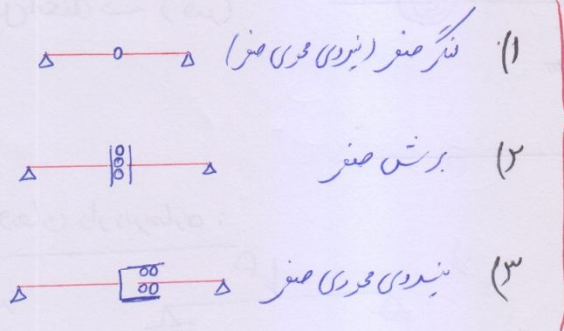 ۱) لنگر صفر (نیروی محوری صفر)
۲) برش صفر
۳) نیروی محوری صفر